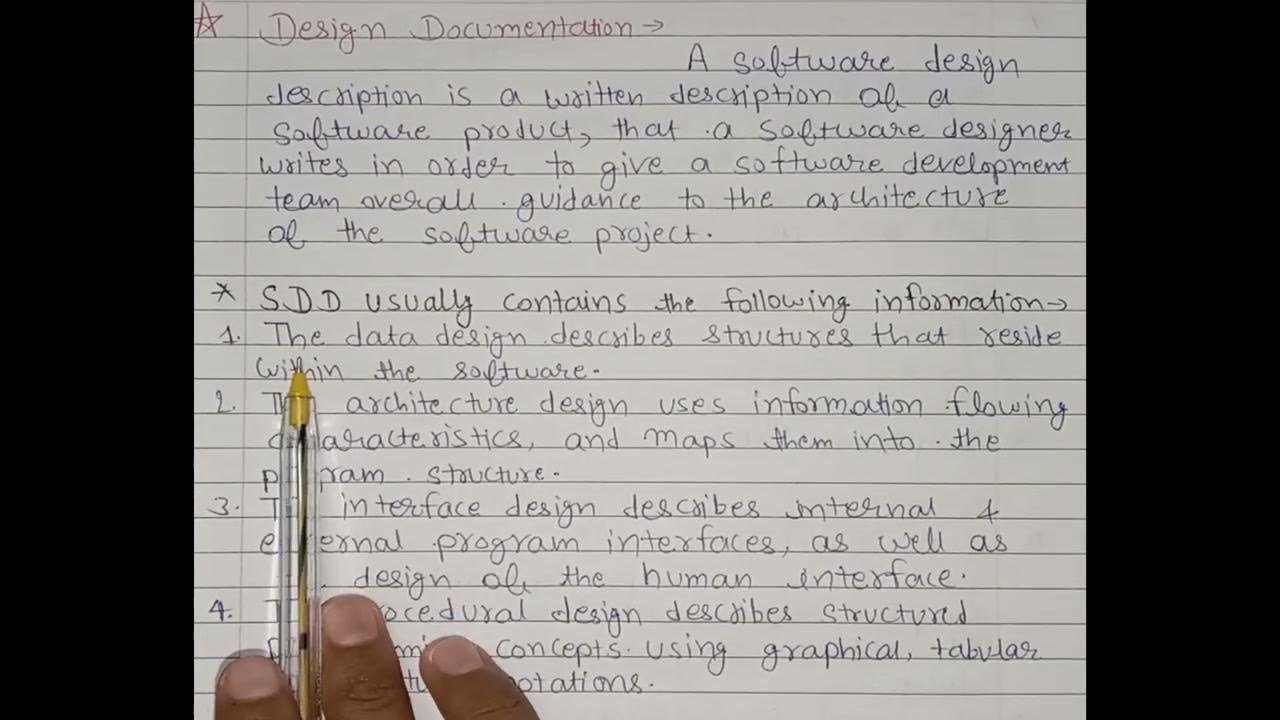 ☆ Design Documentation →
A software design
description is a written description of a
software product, that a software designer
writes in order to give a software development
team overall guidance to the architecture
of the software project.
* S.D.D usually contains the following information→
1. The data design describes structures that reside
within the software.
2. architecture design uses information flowing
and maps them into the
structure.
3. interface design describes internal &
program interfaces, as well as
design of the human interface.
4. design describes structured
concepts using graphical, tabular
notations.